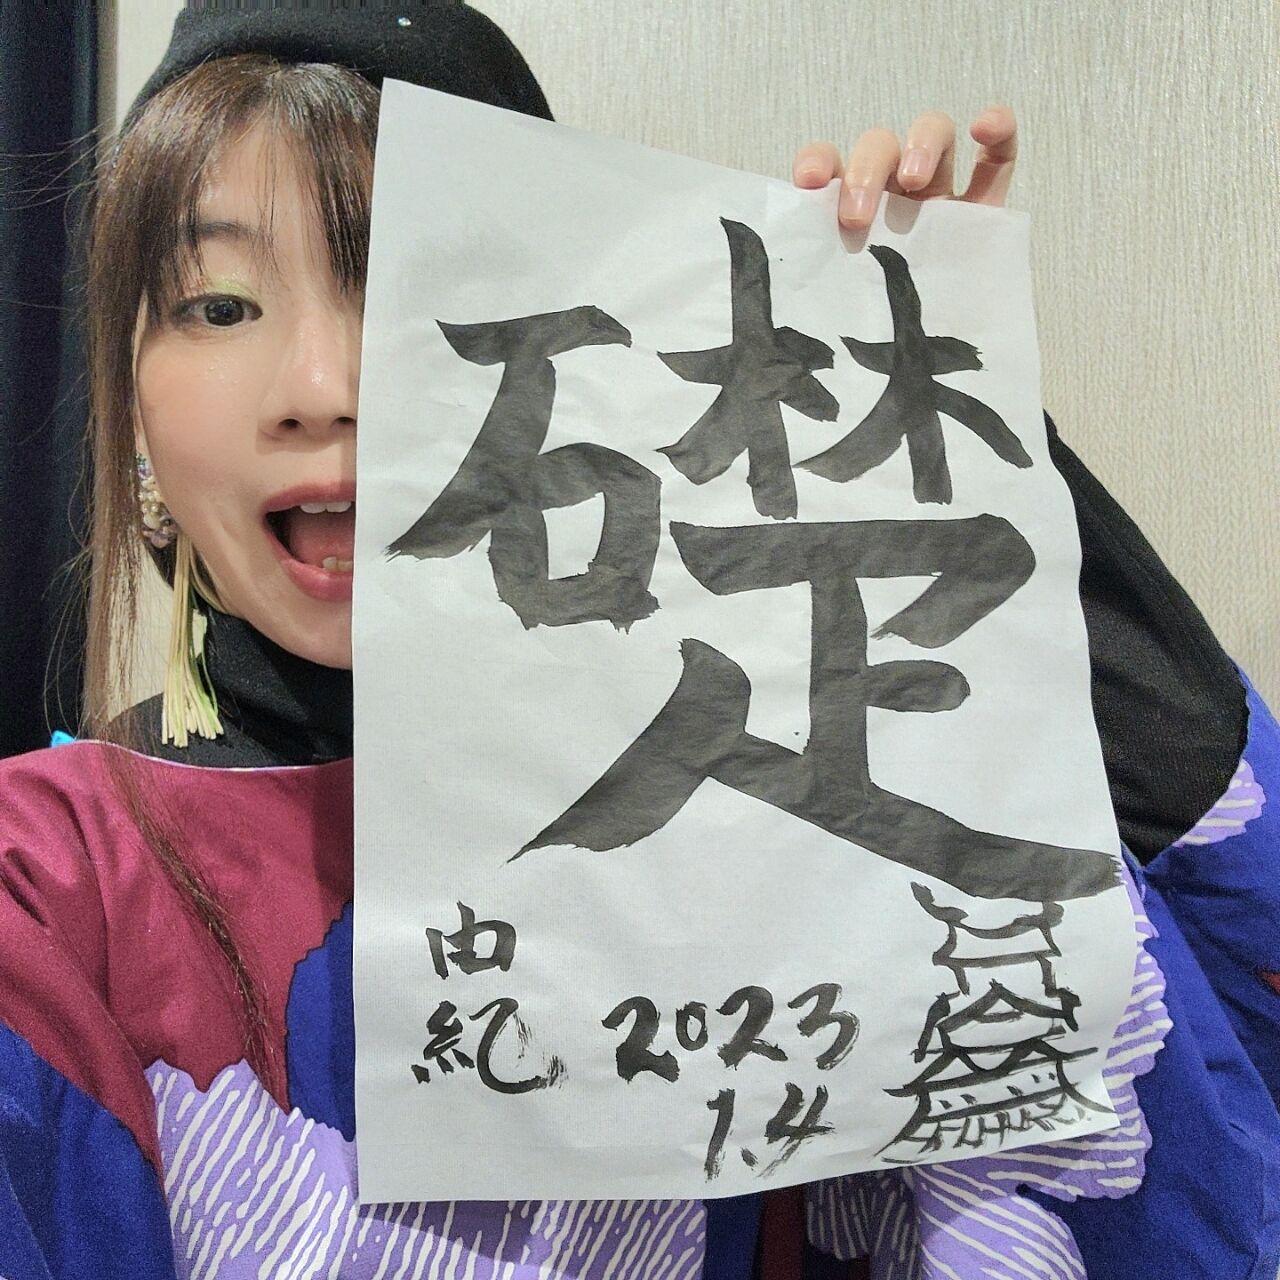 礎
由紀
2023
1.4